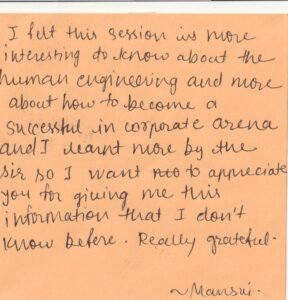 I felt this session is more
interesting to know about the
human engineering and more
about how to become a
successful in corporate arena
and I learnt more by the
sir so I want to appreciate
you for giving me this
information that I don't
know before. Really grateful.
~Mansvi.